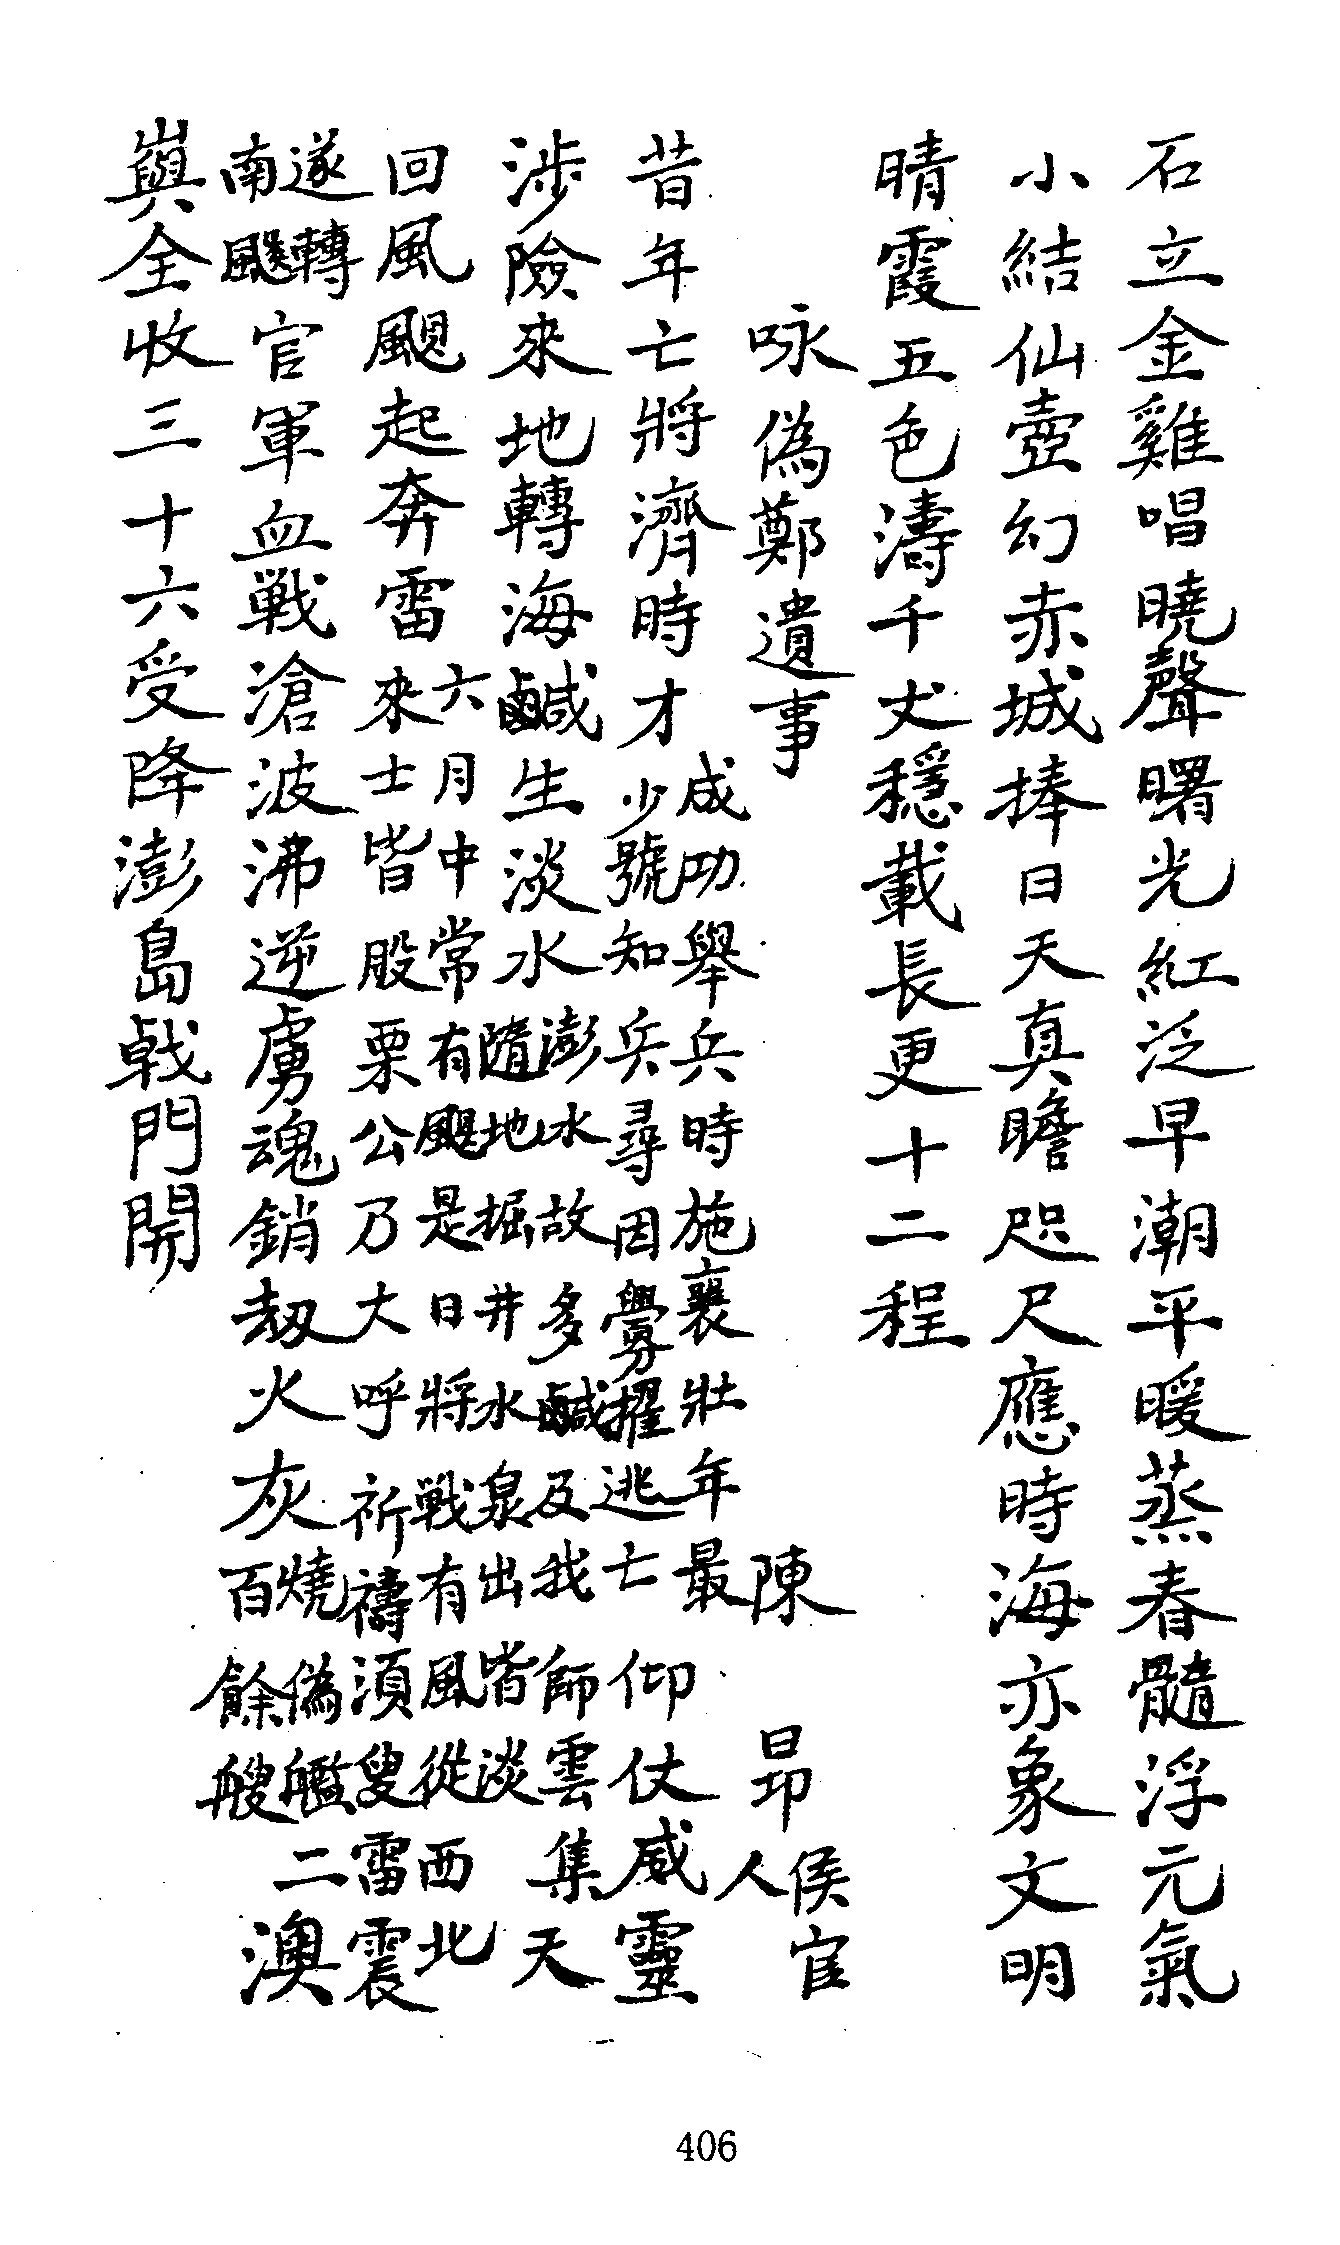 石立金雞唱曉聲曙光紅泛早潮平暖蒸春髓浮元氣
小結仙壺幻赤城捧日天真瞻咫尺應時海亦象文明
晴霞五色濤千丈穩載長更十二程
咏偽鄭遺事 陳 昂 侯官人
昔年亡將濟時才 成功舉兵時施襄壯年最少號知兵尋因釁擢逃亡 仰仗威靈
涉險來地轉海鹹生淡水 澎水故多鹹及我師雲集隨地掘井水泉出皆淡 天
回風颶起奔雷 六月中常有颶是日將戰有風從西北來士皆股栗公乃大呼祈禱須臾雷震
遂轉南颶 官軍血戰滄波沸逆虜魂銷劫火灰 燒偽艦二百餘艘 澳
嶼全收三十六受降澎島戟門開
406